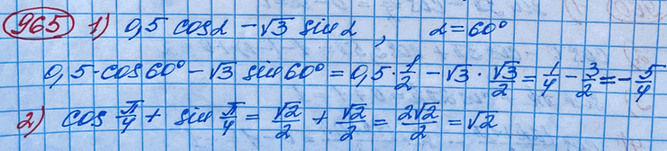 965 1) 0,5 cosα − √3 sinα, α = 60°
0,5·cos60° − √3 sin60° = 0,5·1/2 − √3 · √3/2 = 1/4 − 3/2 = −5/4
2) cos π/4 + sin π/4 = √2/2 + √2/2 = 2√2/2 = √2